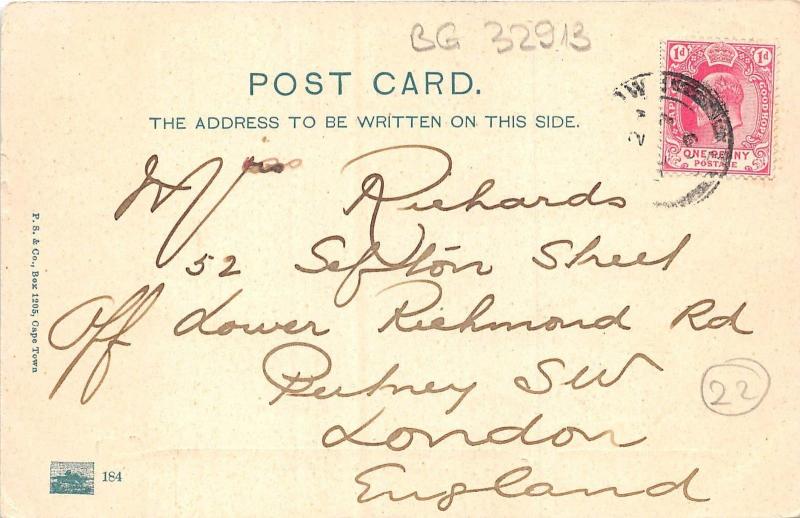 BG 32913
POST CARD.
THE ADDRESS TO BE WRITTEN ON THIS SIDE.
1d 1d
GOOD HOPE
ONE PENNY
POSTAGE
Richards
52 Sefton Street
Off Lower Richmond Rd
Putney SW
London
England
22
P. S. & Co., Box 1205, Cape Town
184